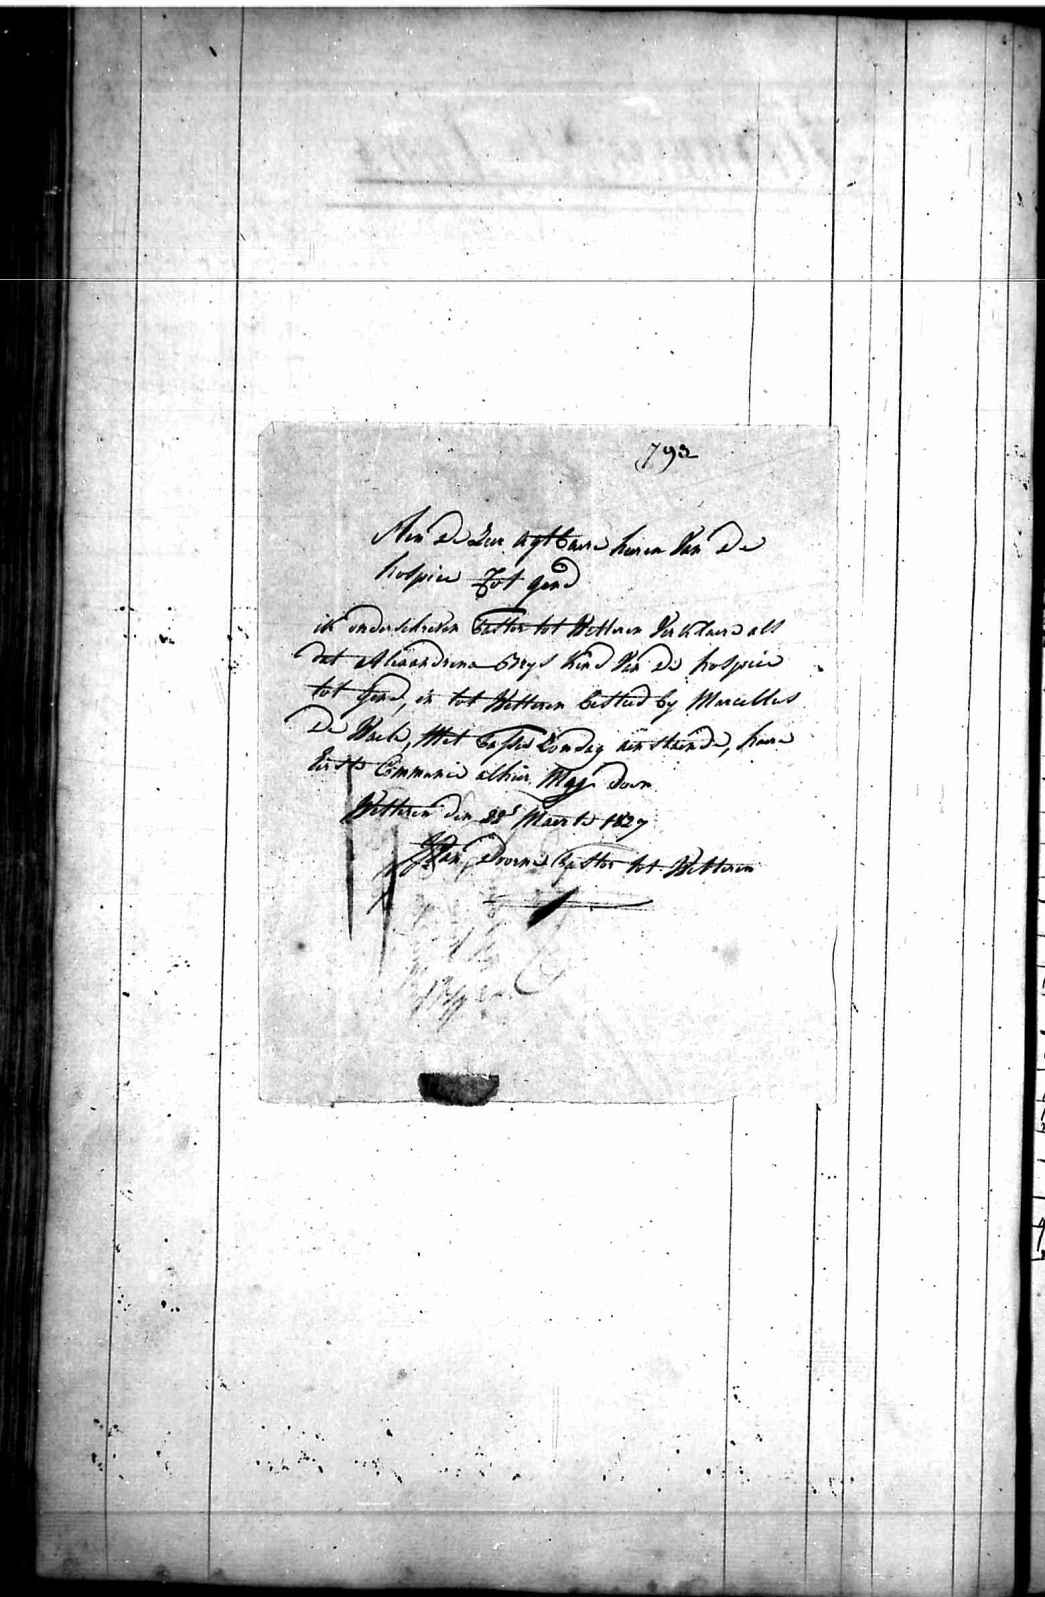 793
Aen de Zeer agtbaere heeren Van de
hospice Tot gend
ik onderschreven paster tot Wetteren Verklaere als
dat Alexandrina Brys kind Van de hospice
tot Gend, en tot Wetteren besteed by Marcellus
De Waele, Met paschen Zondag aenstaende, haere
Eerste Communie alhier Mag doen
Wetteren den 22s Maerte 1827
Van Doorne paster tot Wetteren